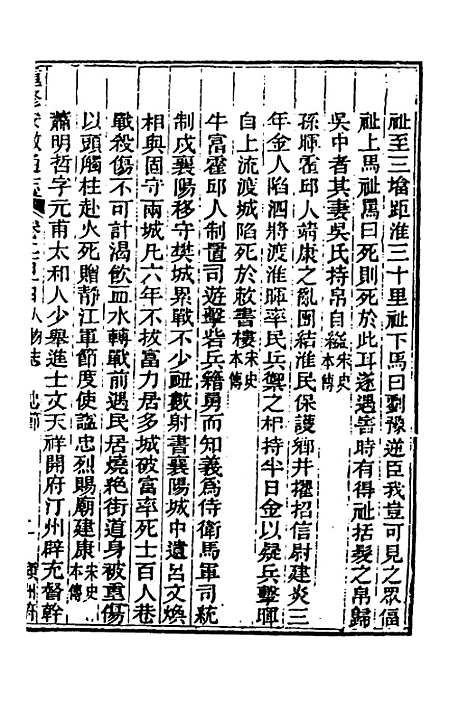 祉至三塠距淮三十里祉下馬曰劉豫逆臣我豈可見之眾偪
祉上馬祉罵曰死則死於此耳遂遇害時有得祉括髮之帛歸
吳中者其妻吳氏持帛自縊宋史本傳
孫暉霍邱人靖康之亂團結淮民保護鄉井擢招信尉建炎三
年金人陷泗將渡淮暉率民兵禦之相持半日金以疑兵擊暉
自上流渡城陷死於敕書樓宋史本傳
牛富霍邱人制置司遊擊砦兵籍勇而知義爲侍衛馬軍司統
制戍襄陽移守樊城累戰不少衄數射書襄陽城中遺呂文煥
相與固守兩城凡六年不拔富力居多城破富率死士百人巷
戰殺傷不可計渴飲血水轉戰前遇民居燒絶街道身被重傷
以頭觸柱赴火死贈靜江軍節度使諡忠烈賜廟建康宋史本傳
蕭明哲字元甫太和人少舉進士文天祥開府汀州辟充督幹
重修安徽通志 人物志 忠節 潁州府